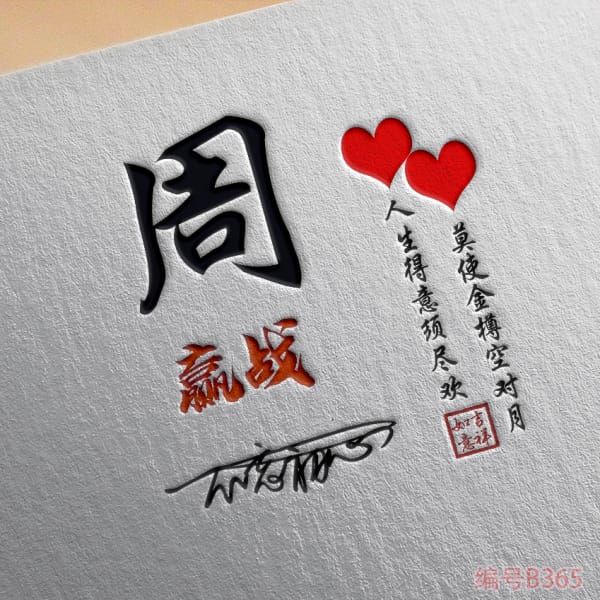 周
赢战
人生得意须尽欢
莫使金樽空对月
吉祥
如意
编号B365